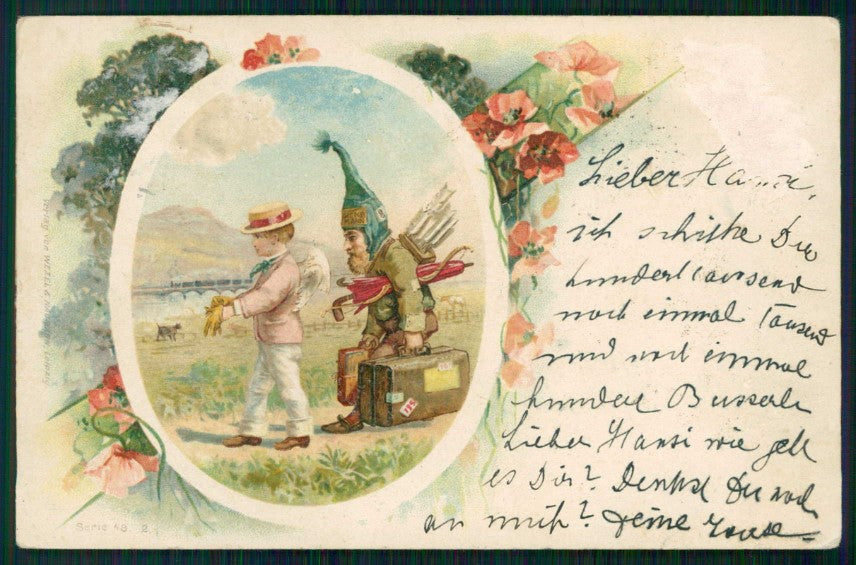 Lieber Hansi,
ich schicke Dir
hunderttausend
noch einmal tausend
und noch einmal
hundert Busserln
Lieber Hansi wie geht
es Dir? Denkst Du noch
an mich? Deine
Serie 18. 2